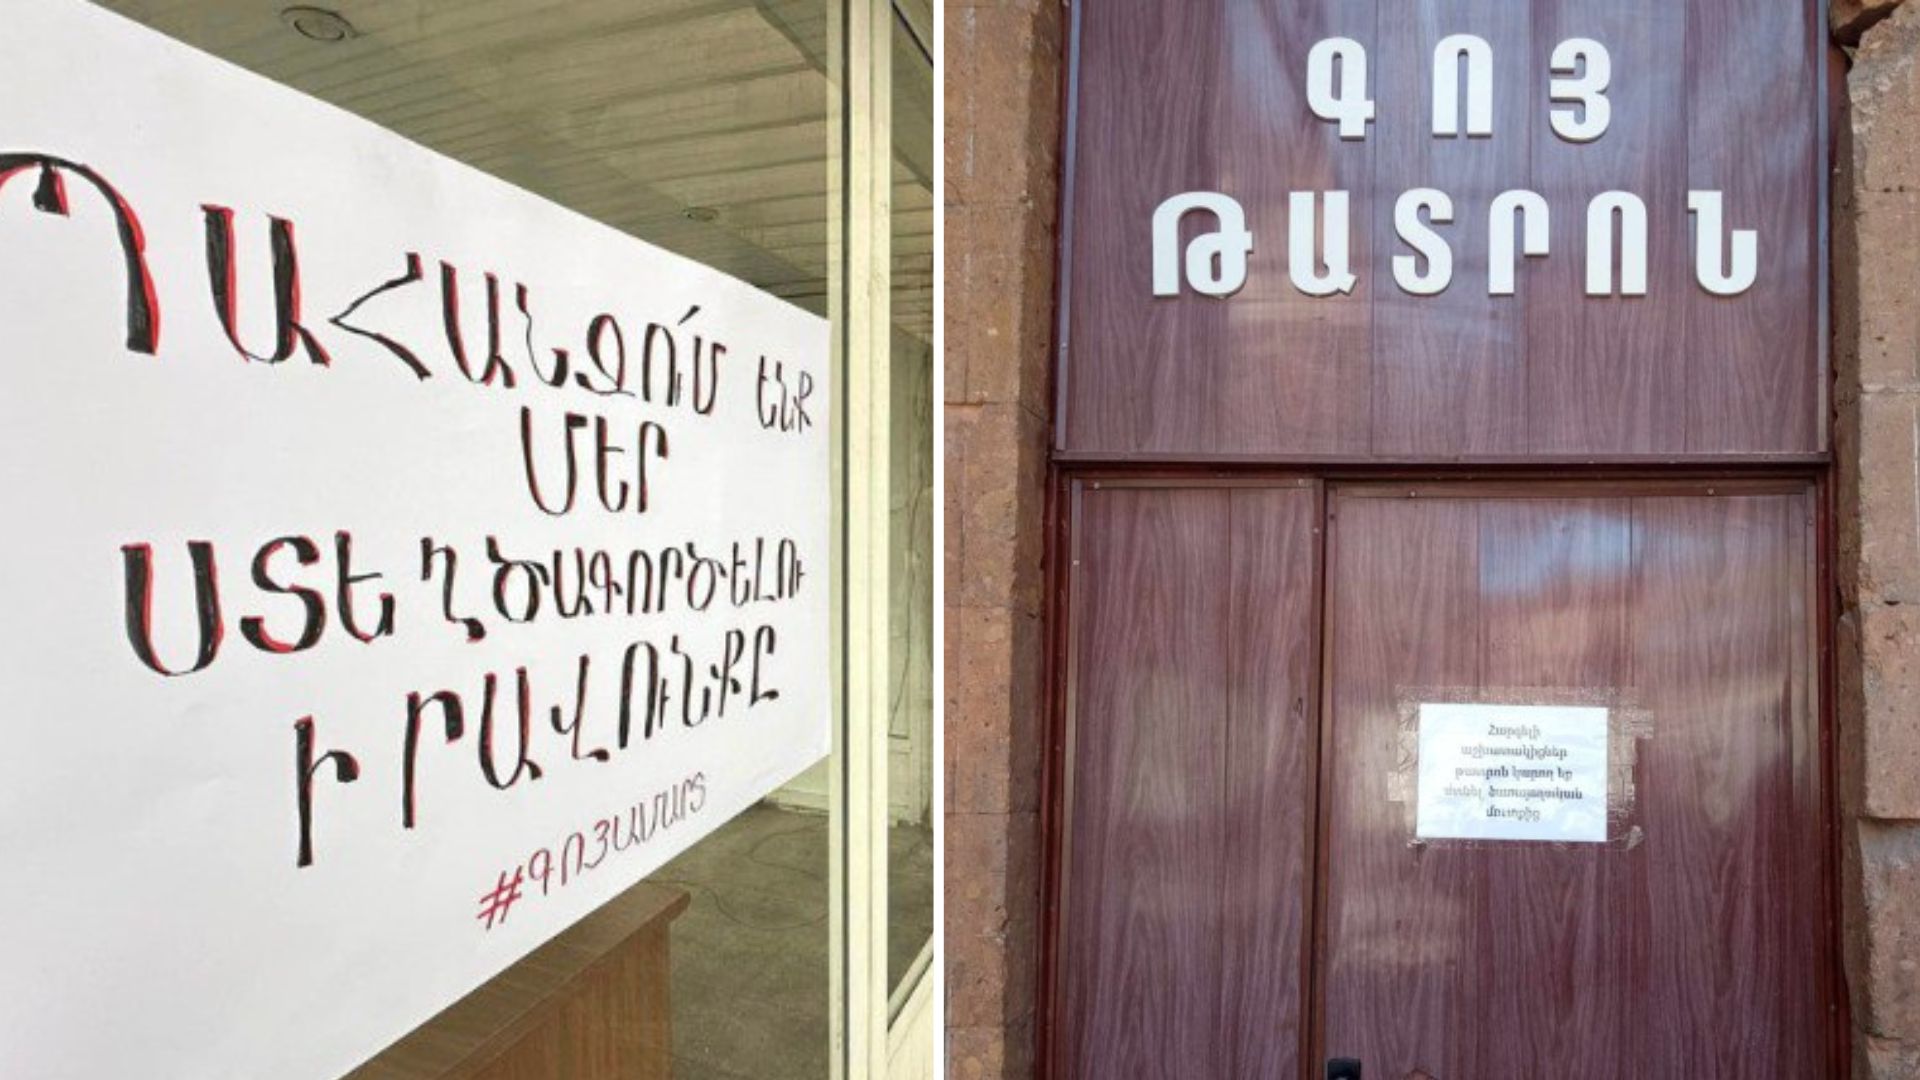 ՊԱՀԱՆՋՈՒ՛Մ ԵՆՔ
ՄԵՐ
ՍՏԵՂԾԱԳՈՐԾԵԼՈՒ
ԻՐԱՎՈՒՆՔԸ
#ԳՈՅԱՄԱՐՏ
ԳՈՅ
ԹԱՏՐՈՆ
Հարգելի
աշխատակիցներ
թատրոն կարող եք
մտնել ծառայողական
մուտքից